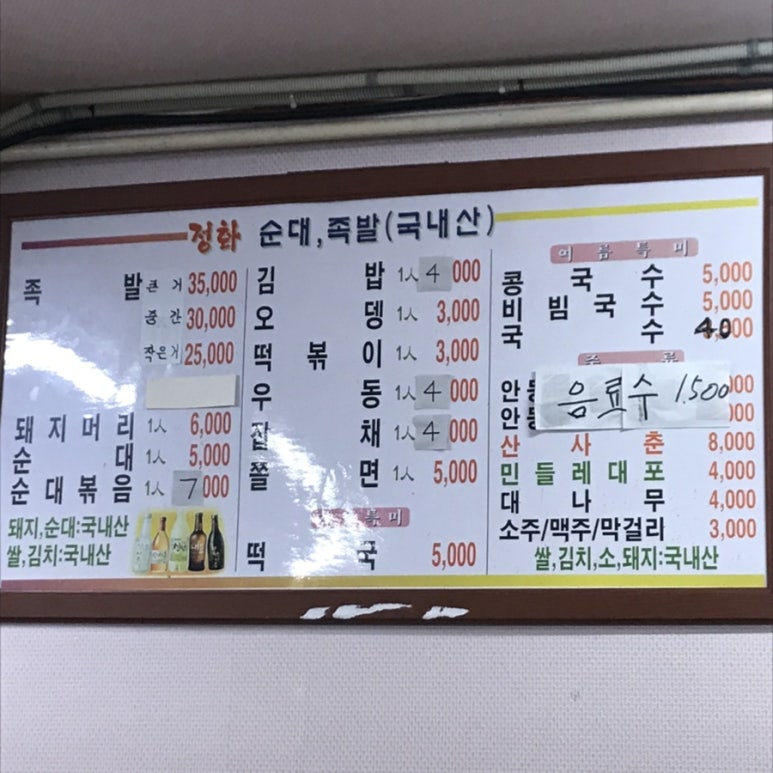 정화 순대,족발(국내산)
족 발 큰 거 35,000
중 간 30,000
작은거 25,000
돼지머리 1人 6,000
순 대 1人 5,000
순대볶음 1人 7000
돼지,순대:국내산
쌀,김치:국내산
김 밥 1人 4000
오 뎅 1人 3,000
떡 볶 이 1人 3,000
우 동 1人 4000
잡 채 1人 4000
쫄 면 1人 5,000
특 미
떡 국 5,000
여 름 특 미
콩 국 수 5,000
비 빔 국 수 5,000
국 수
주 류
안 000
음료수 1.500
안 000
산 사 춘 8,000
민들레대포 4,000
대 나 무 4,000
소주/맥주/막걸리 3,000
쌀,김치,소,돼지:국내산